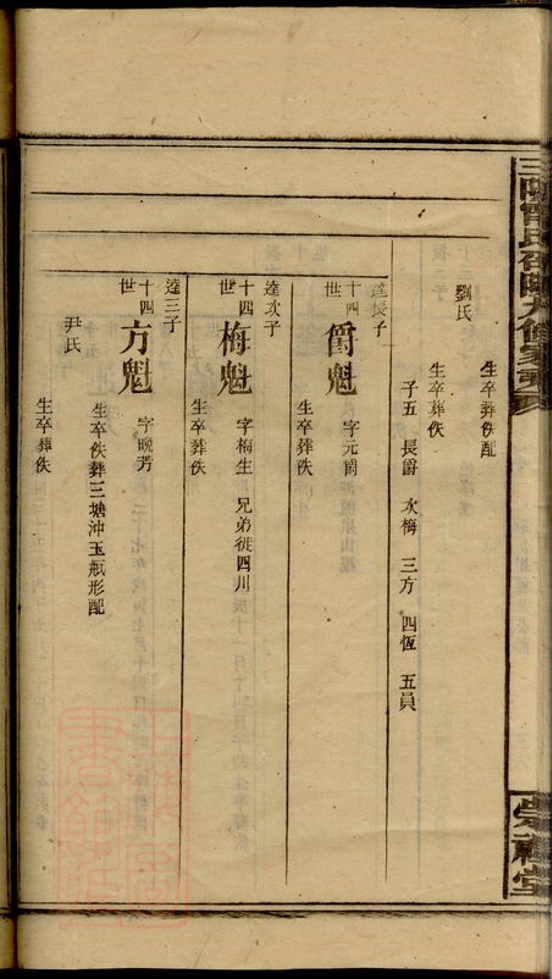 生卒葬佚配
劉氏
生卒葬佚
子五 長爵 次梅 三方 四恆 五員
達長子
十四世 爵魁 字元爵
生卒葬佚
達次子
十四世 梅魁 字梅生 兄弟徙四川
生卒葬佚
達三子
十四世 方魁 字晚芳
生卒佚葬三塘沖玉瓶形配
尹氏
生卒葬佚